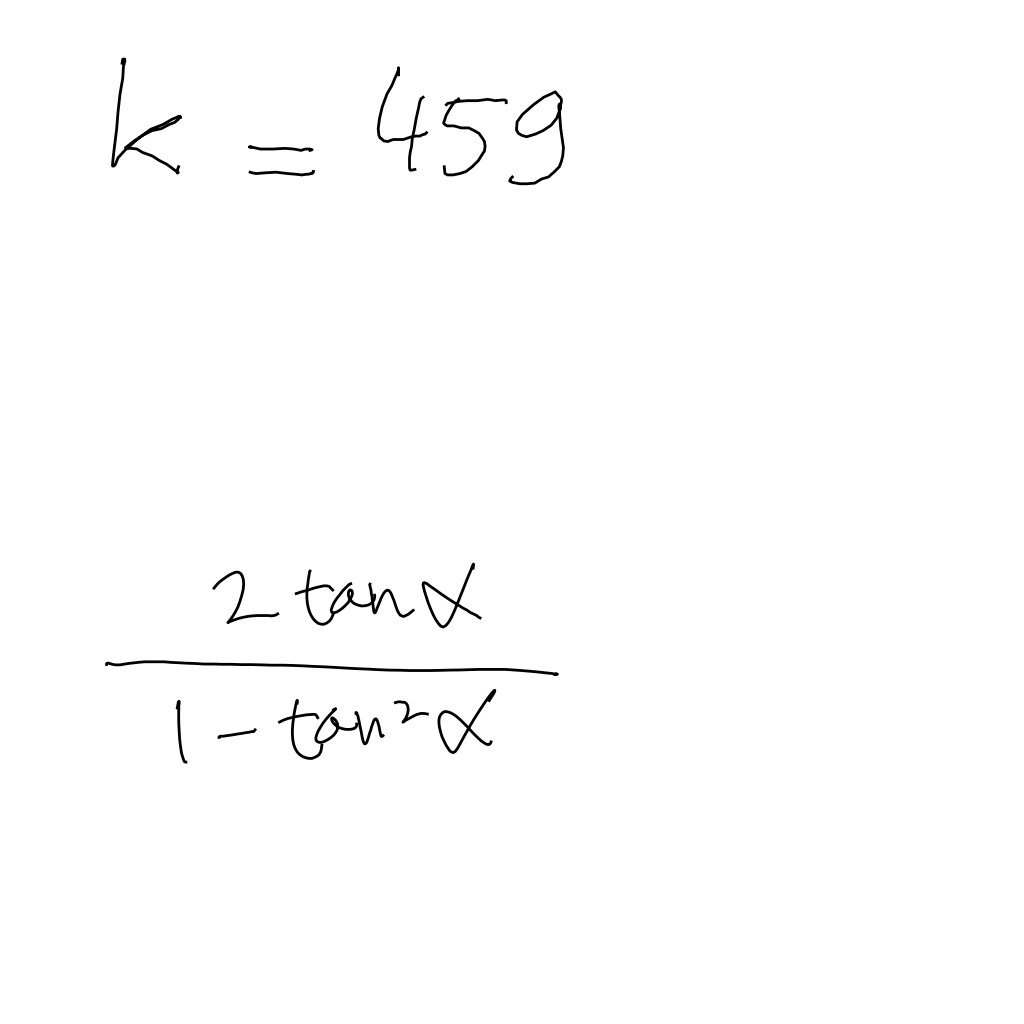 k = 459
2 tan α
1 - tan² α